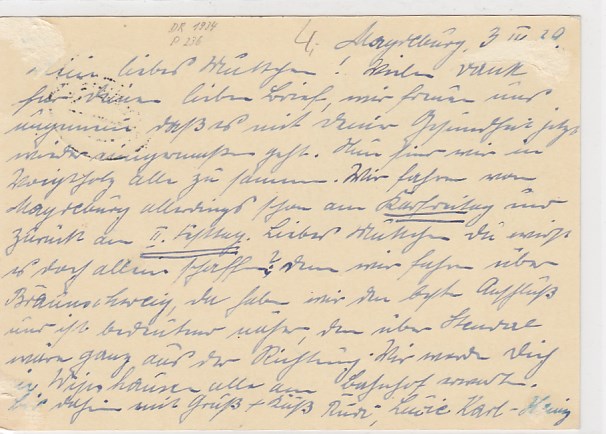 DR 1924
P 236
4.
Magdeburg, 3 III 29.
Mein liebes Muttchen! Vielen Dank
für Deinen lieben Brief, wir freuen uns
ungemein daß es mit Deiner Gesundheit jetzt
wieder einigermaßen geht. Nun sind wir in
Voigtholz alle zusammen. Wir fahren von
Magdeburg allerdings schon am Karfreitag und
zurück am II. Festtag. Liebes Muttchen Du wirst
es doch allein schaffen? denn wir fahren über
Braunschweig, da haben wir den besten Anschluß
und ist bedeutend näher, denn über Stendal
wäre ganz aus der Richtung. Wir werden Dich
in alle am Bahnhof erwarten.
Bis dahin mit Gruß + Kuß Rudi, Lucie Karl-Heinz